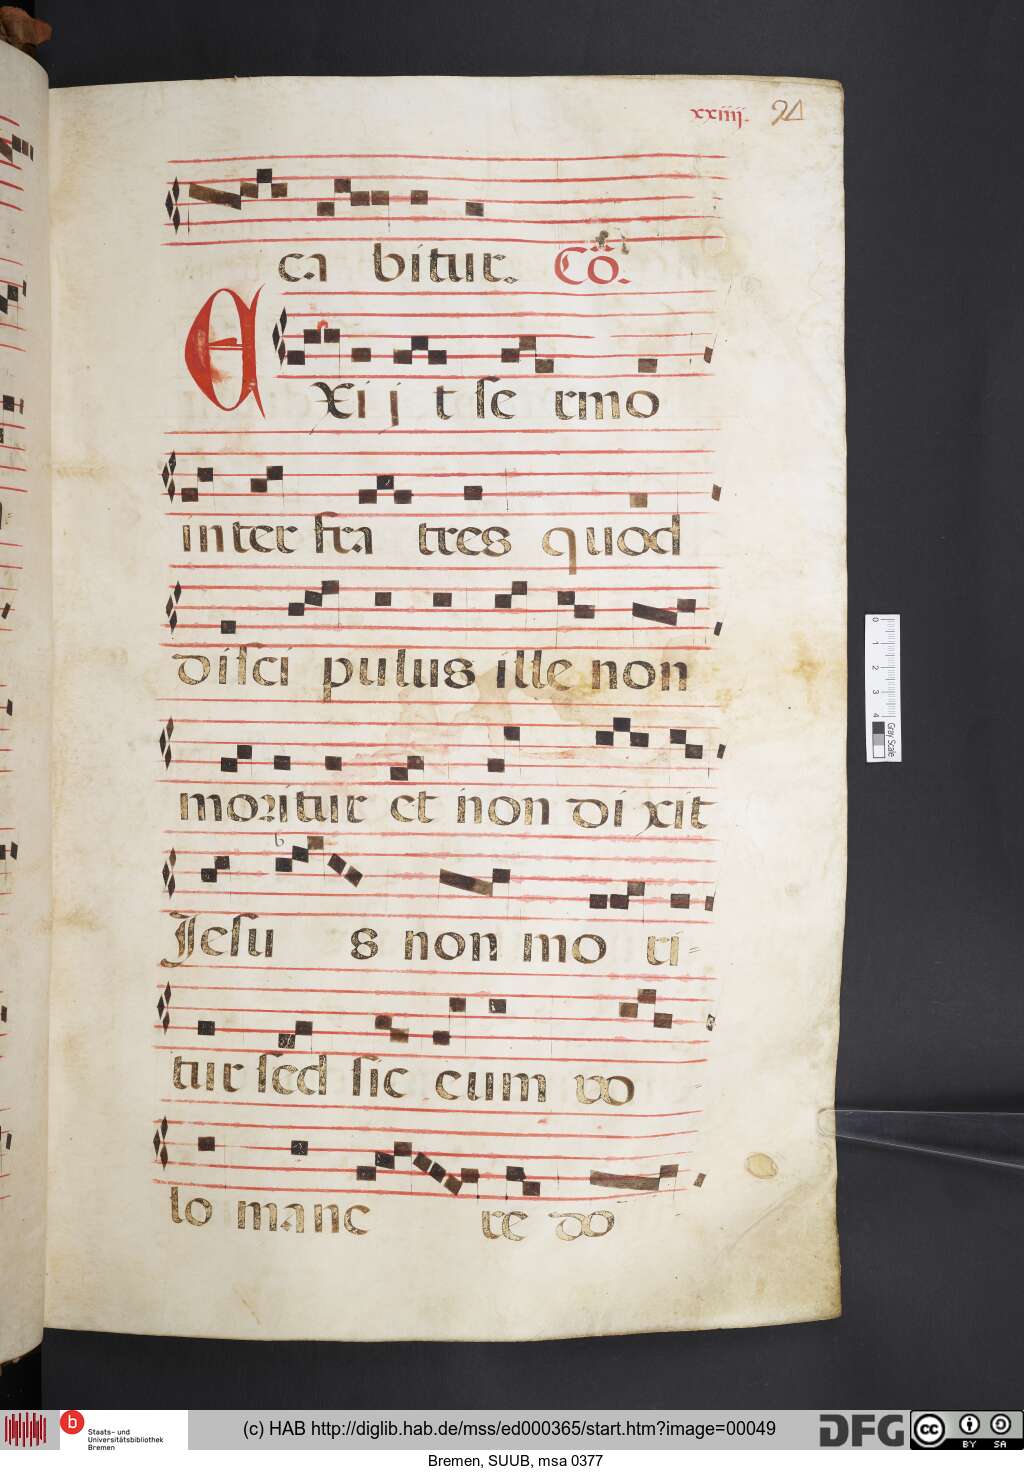 xxiiij. 24
ca bitur. Cõ.
Exi j t ſe rmo
inter fra tres quod
diſci pulus ille non
moritur et non di xit
b
Jeſu s non mo ri=
tur ſed ſic eum vo
lo mane re do
0 1 2 3 4 Gray Scale
b Staats- und Universitätsbibliothek Bremen
(c) HAB http://diglib.hab.de/mss/ed000365/start.htm?image=00049
DFG
cc BY SA
Bremen, SUUB, msa 0377